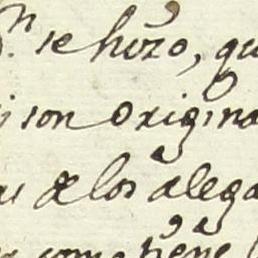 n. se hizo, qu
i son Origina
as de los alega
como tiene